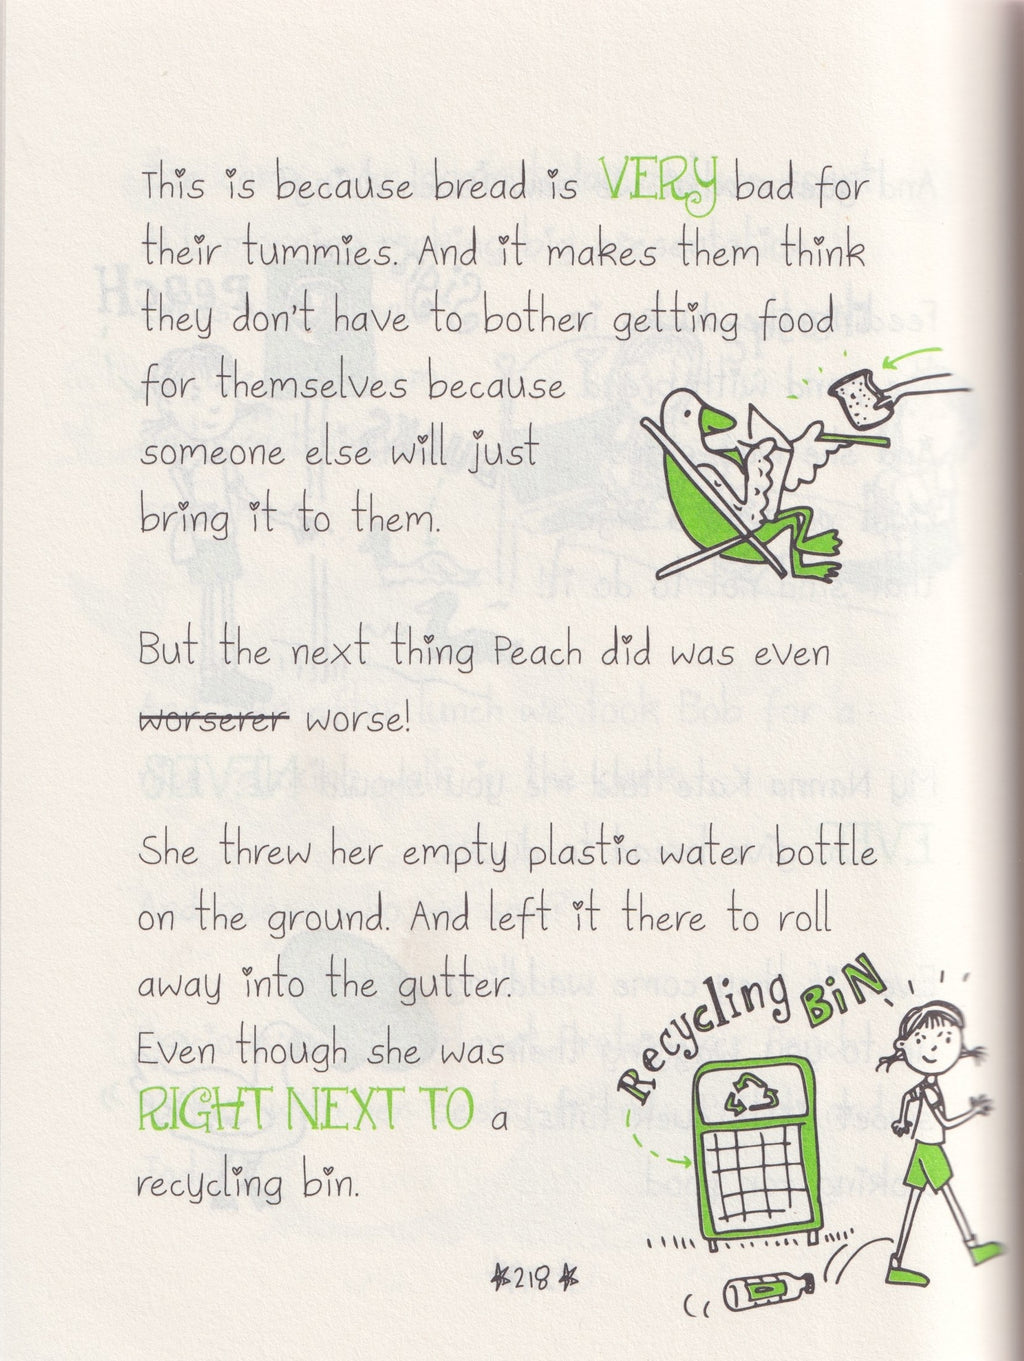 This is because bread is VERY bad for
their tummies. And it makes them think
they don't have to bother getting food
for themselves because
someone else will just
bring it to them.
But the next thing Peach did was even
worserer worse!
She threw her empty plastic water bottle
on the ground. And left it there to roll
away into the gutter.
Even though she was
RIGHT NEXT TO a
recycling bin.
Recycling BiN
218